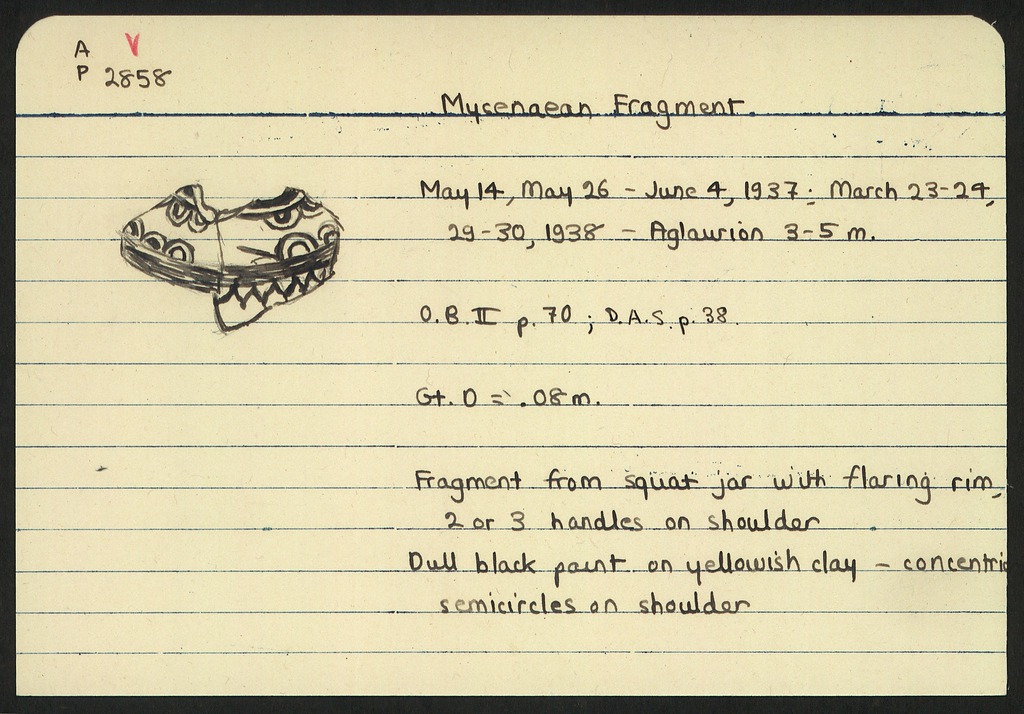 A V
P 2858
Mycenaean Fragment.
May 14, May 26 - June 4, 1937; March 23-24,
29-30, 1938 - Aglaurion 3-5 m.
O.B. II p. 70 ; D.A.S. p. 38.
Gt. D = .08 m.
Fragment from squat jar with flaring rim,
2 or 3 handles on shoulder
Dull black paint on yellowish clay - concentric
semicircles on shoulder